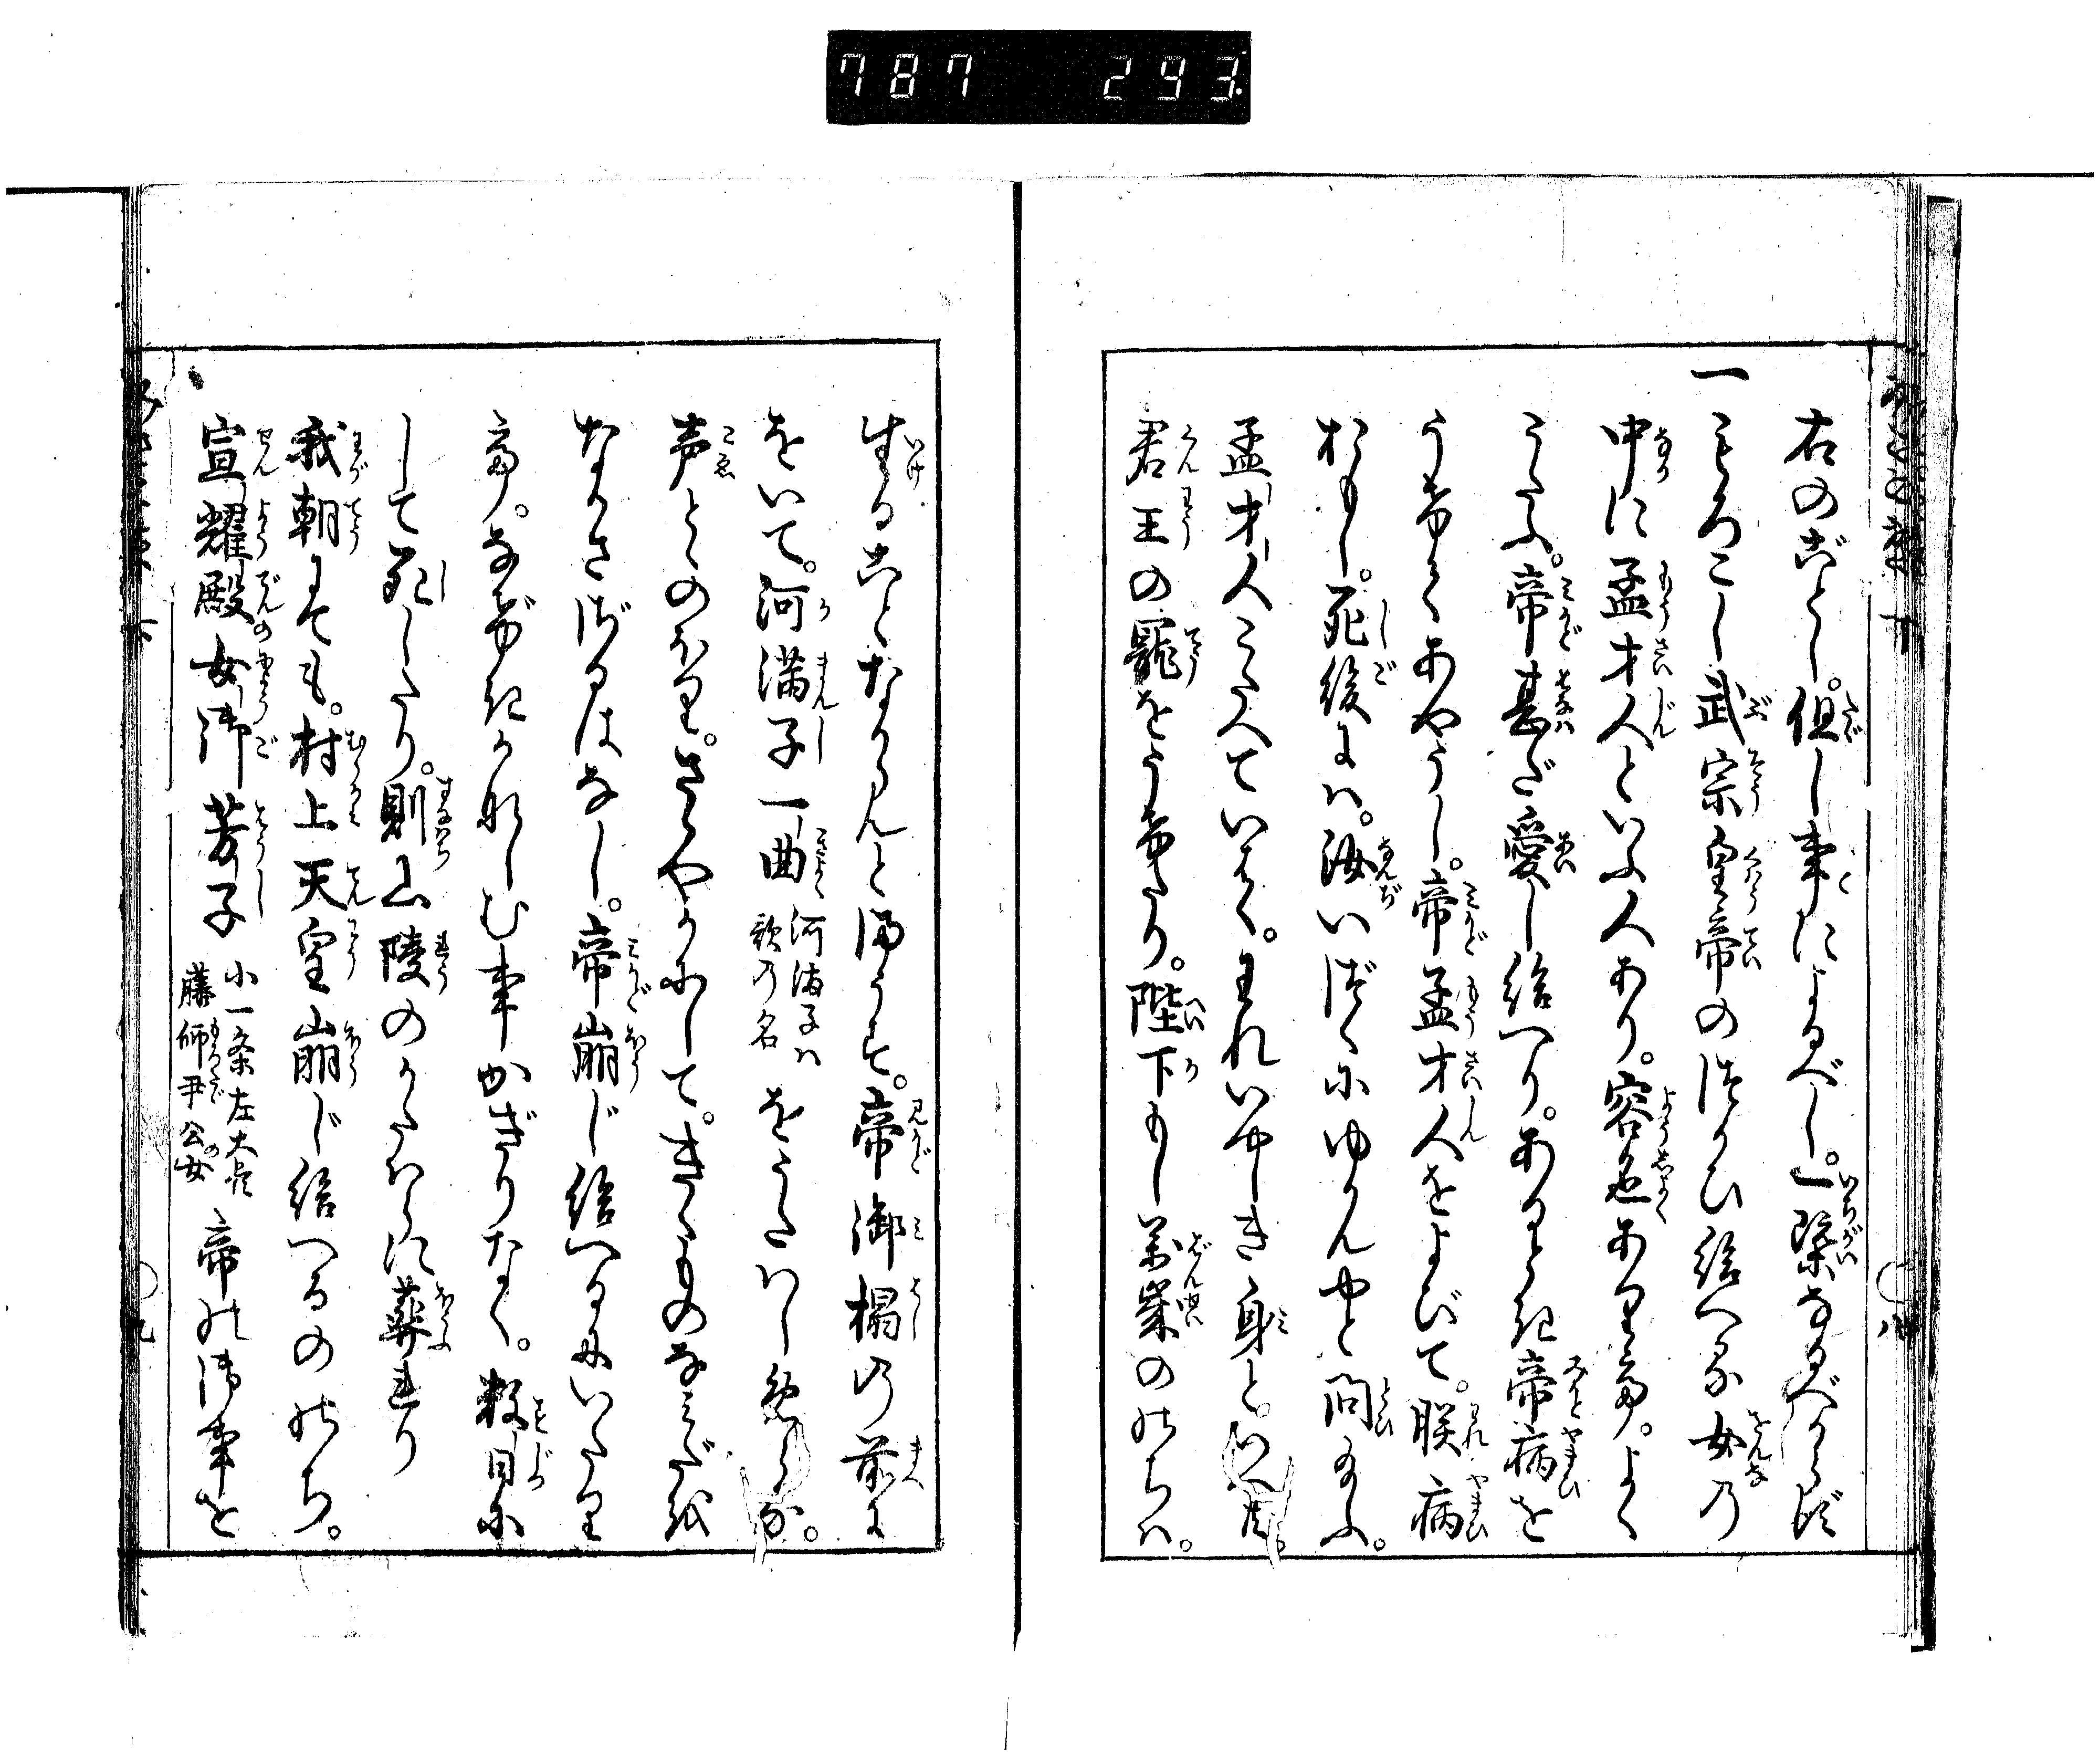 787 293
右のごとし。但し事によるべし。一槩なるべからず
一もろこし武宗皇帝のつかひ給へる女の
中に孟才人といふ人あり。容色ありて。よく
うたふ。帝甚だ愛し給へり。あるとき帝病を
うけてあやうし。帝孟才人をよびて。朕病
おもし。死後には。汝いづくにゆかんやと問給ふ。
孟才人こたへていはく。われいやしき身といへ共。
君王の寵をうけたり。陛下もし萬歳ののちは。
生ることなからんと
帝御榻の前に
をいて。河満子一曲
河満子ハ
歌の名
をうたはし
声とゝのほり。さはやかにして。きくものなみだを
ながさざるはなし。帝崩じ給へるにいたり
て。なげきかなしむ事かぎりなく。数日に
して死したり。則山陵のかたはらに葬れり
我朝にても。村上天皇崩じ給へるののち。
宣耀殿女御芳子
小一条左大臣
藤師尹公女
帝の御事を